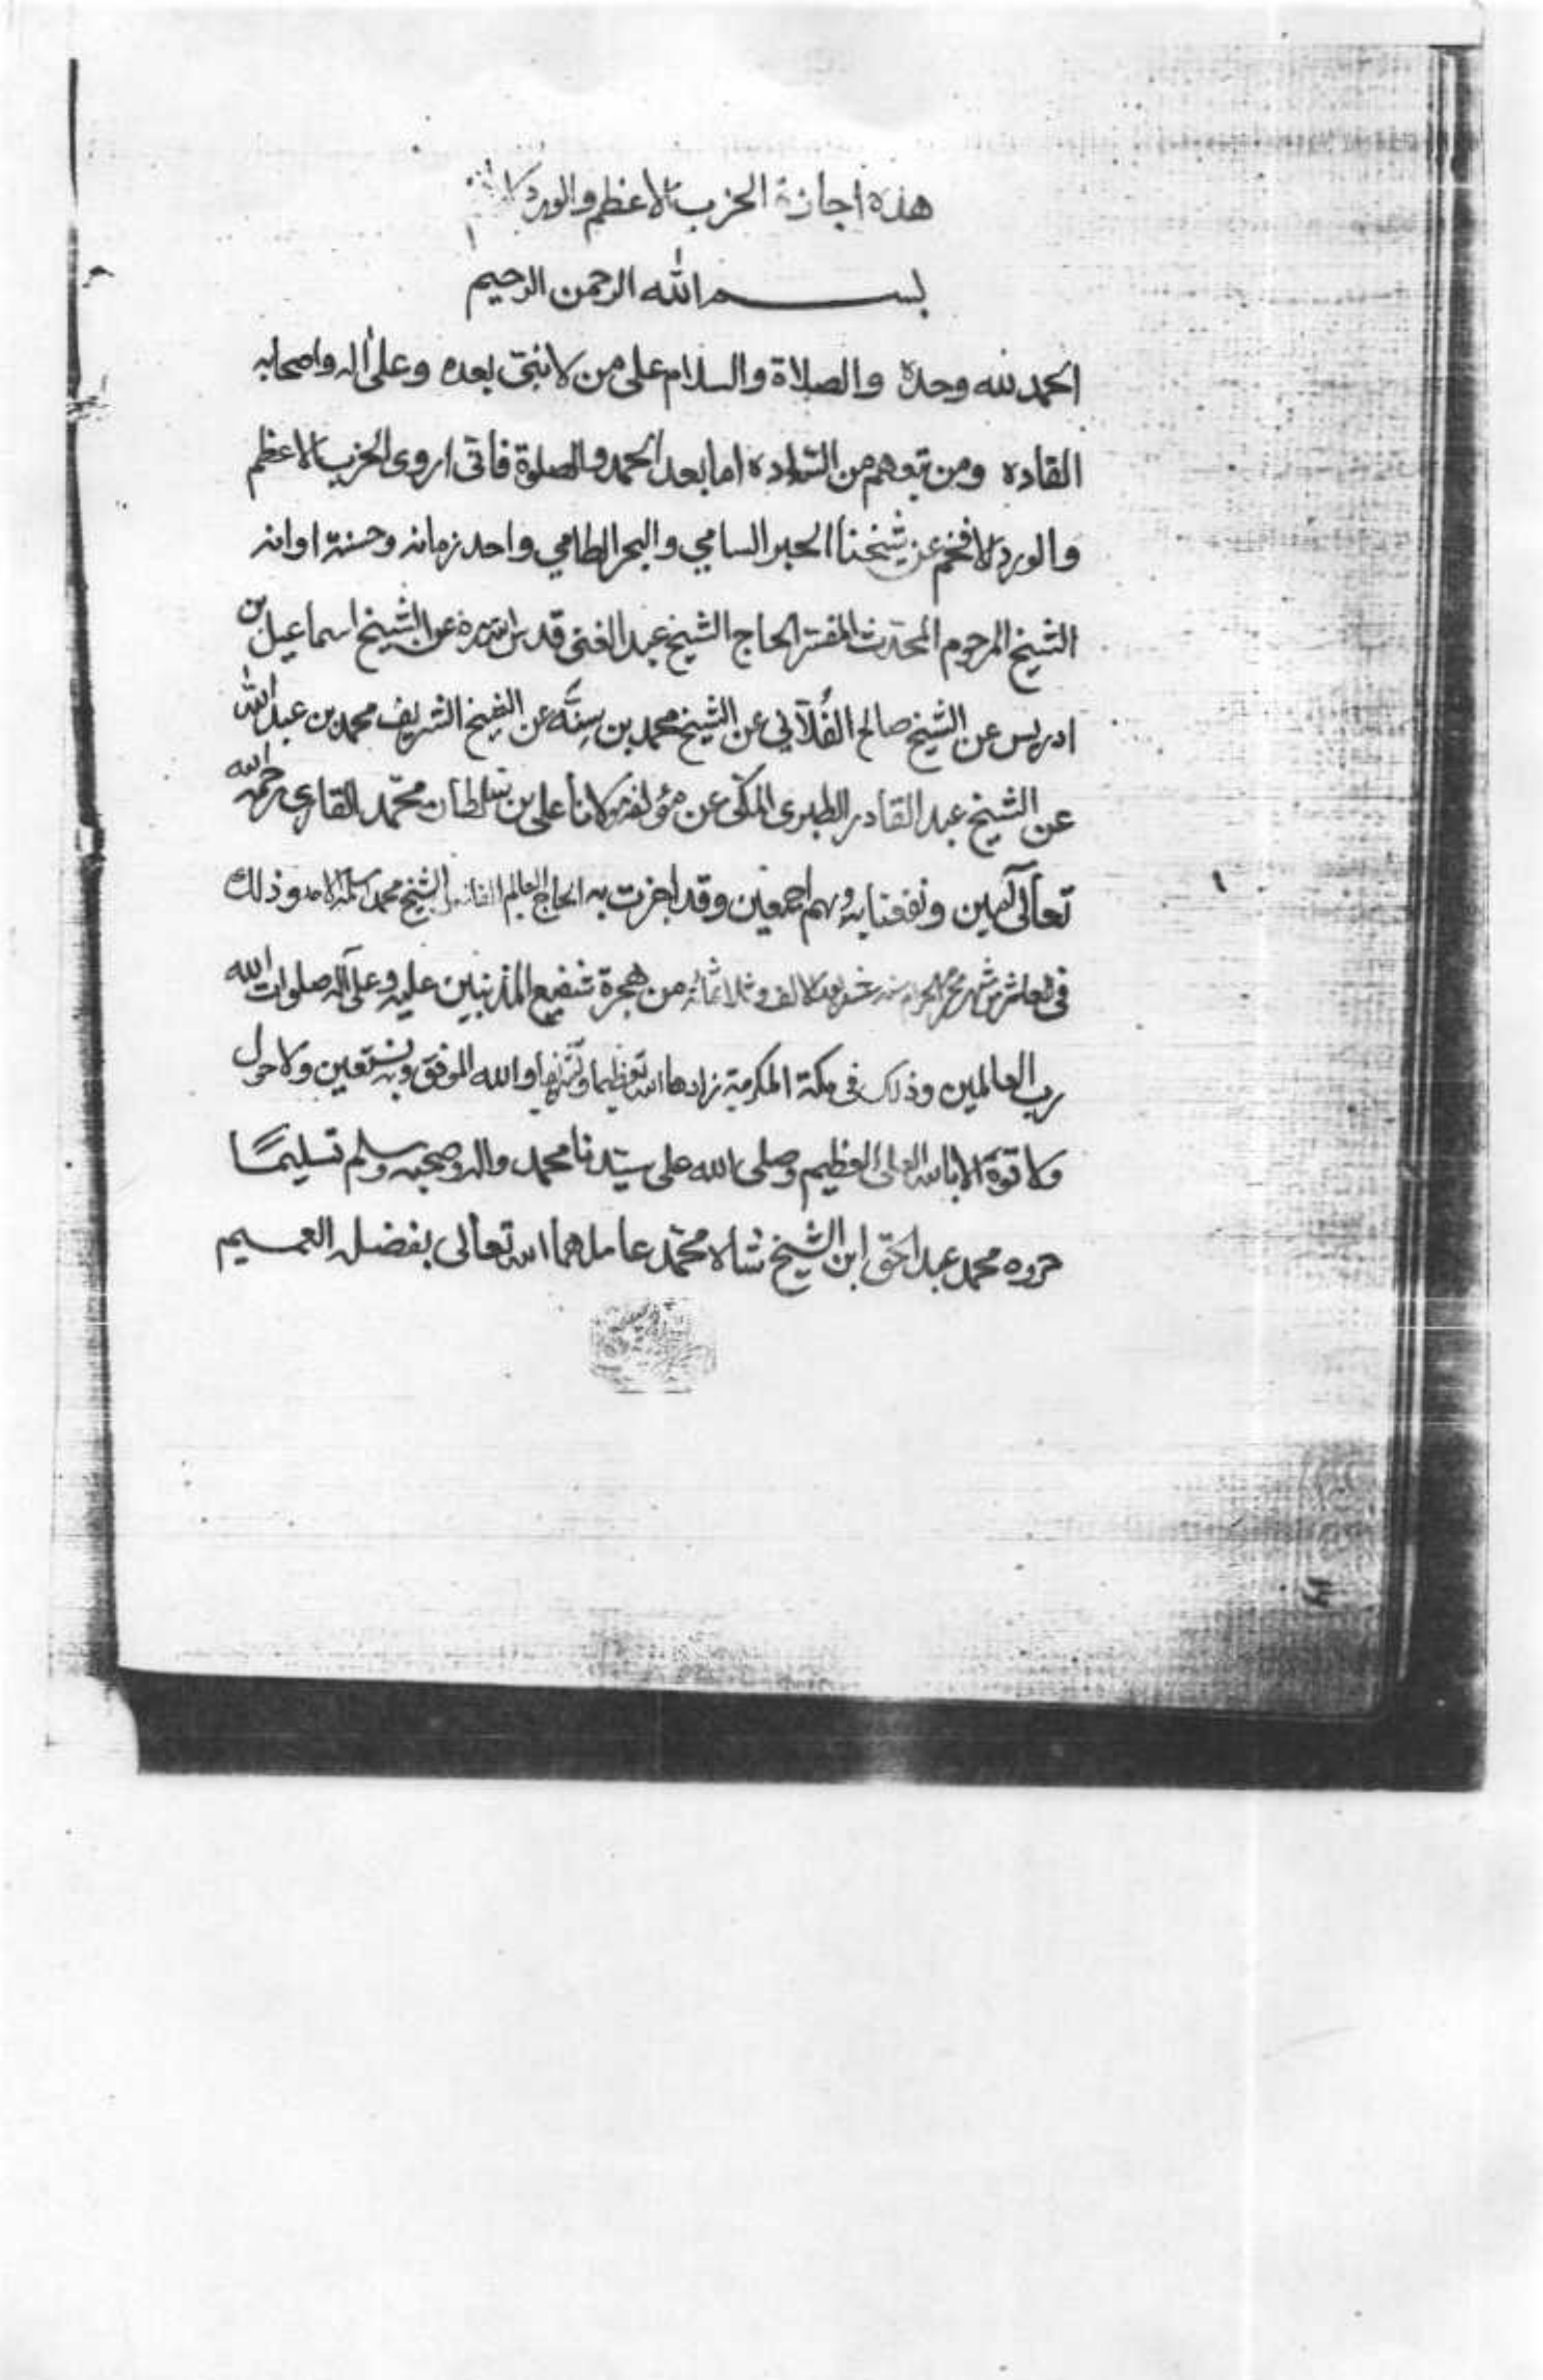 هذه اجازة الحزب الاعظم والورد
بسم الله الرحمن الرحيم
الحمد لله وحده والصلاة والسلام على من لا نبيّ بعده وعلى اله واصحابه
القاده ومن تبعهم من الساده اما بعد الحمد والصلوة فانى اروى الحزب الاعظم
والورد الافخم عن شيخنا الحبر السامي والبحر الطامي واحد زمانه وحسنة اوانه
الشيخ المرحوم المحدث المفسر الحاج الشيخ عبد الغنى قدس الله سره عن الشيخ اسماعيل بن
ادريس عن الشيخ صالح الفُلّآني عن الشيخ محمد بن سِنَّه عن الشيخ الشريف محمد بن عبد الله
عن الشيخ عبد القادر الطبرى المكّى عن مؤلفه مولانا على بن سلطان محمّد القارى رحمه الله
تعالى آمين ونفعنا به وبهم اجمعين وقد اجزت به الحاج العالم الفاضل الشيخ محمد وذلك
فى العاشر من شهر محرم الحرام سنه بعد الالف وثلاثمائه من هجرة شفيع المذنبين عليه وعلى آله صلوات الله
رب العالمين وذلك فى مكة المكرمة زادها الله تعظيما وتشريفا والله الموفق وبه نستعين ولا حول
ولا قوّة الا بالله العلى العظيم وصلى الله على سيّدنا محمد واله وصحبه وسلم تسليمًا
حرره محمد عبد الحق ابن الشيخ شاه محمّد عاملهما الله تعالى بفضله العميم